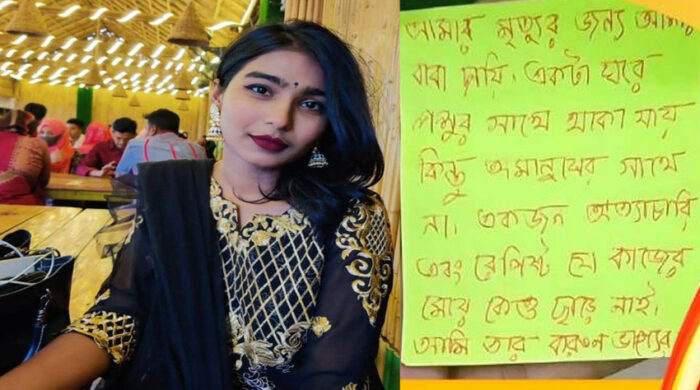 আমার মৃত্যুর জন্য আমার
বাবা দায়ি. একটা ঘরে
পশুর সাথে থাকা যায়
কিন্তু অমানুষের সাথে
না. একজন অত্যাচারি
এবং রেপিস্ট যে কাজের
মেয়ে কেও ছাড়ে নাই.
আমি তার করুণ ভাগ্যের